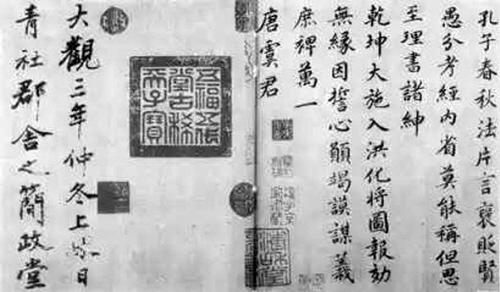 孔子春秋法片言褒貶賢
愚分考經内省莫能稱但思
至理書諸紳
乾坤大施入洪化將圖報効
無緣因誓心願竭謨謀義
庶裨萬一
唐虞君
五福五代
堂古稀
天子寶
大觀三年仲冬上日
青社郡舍之簡政堂